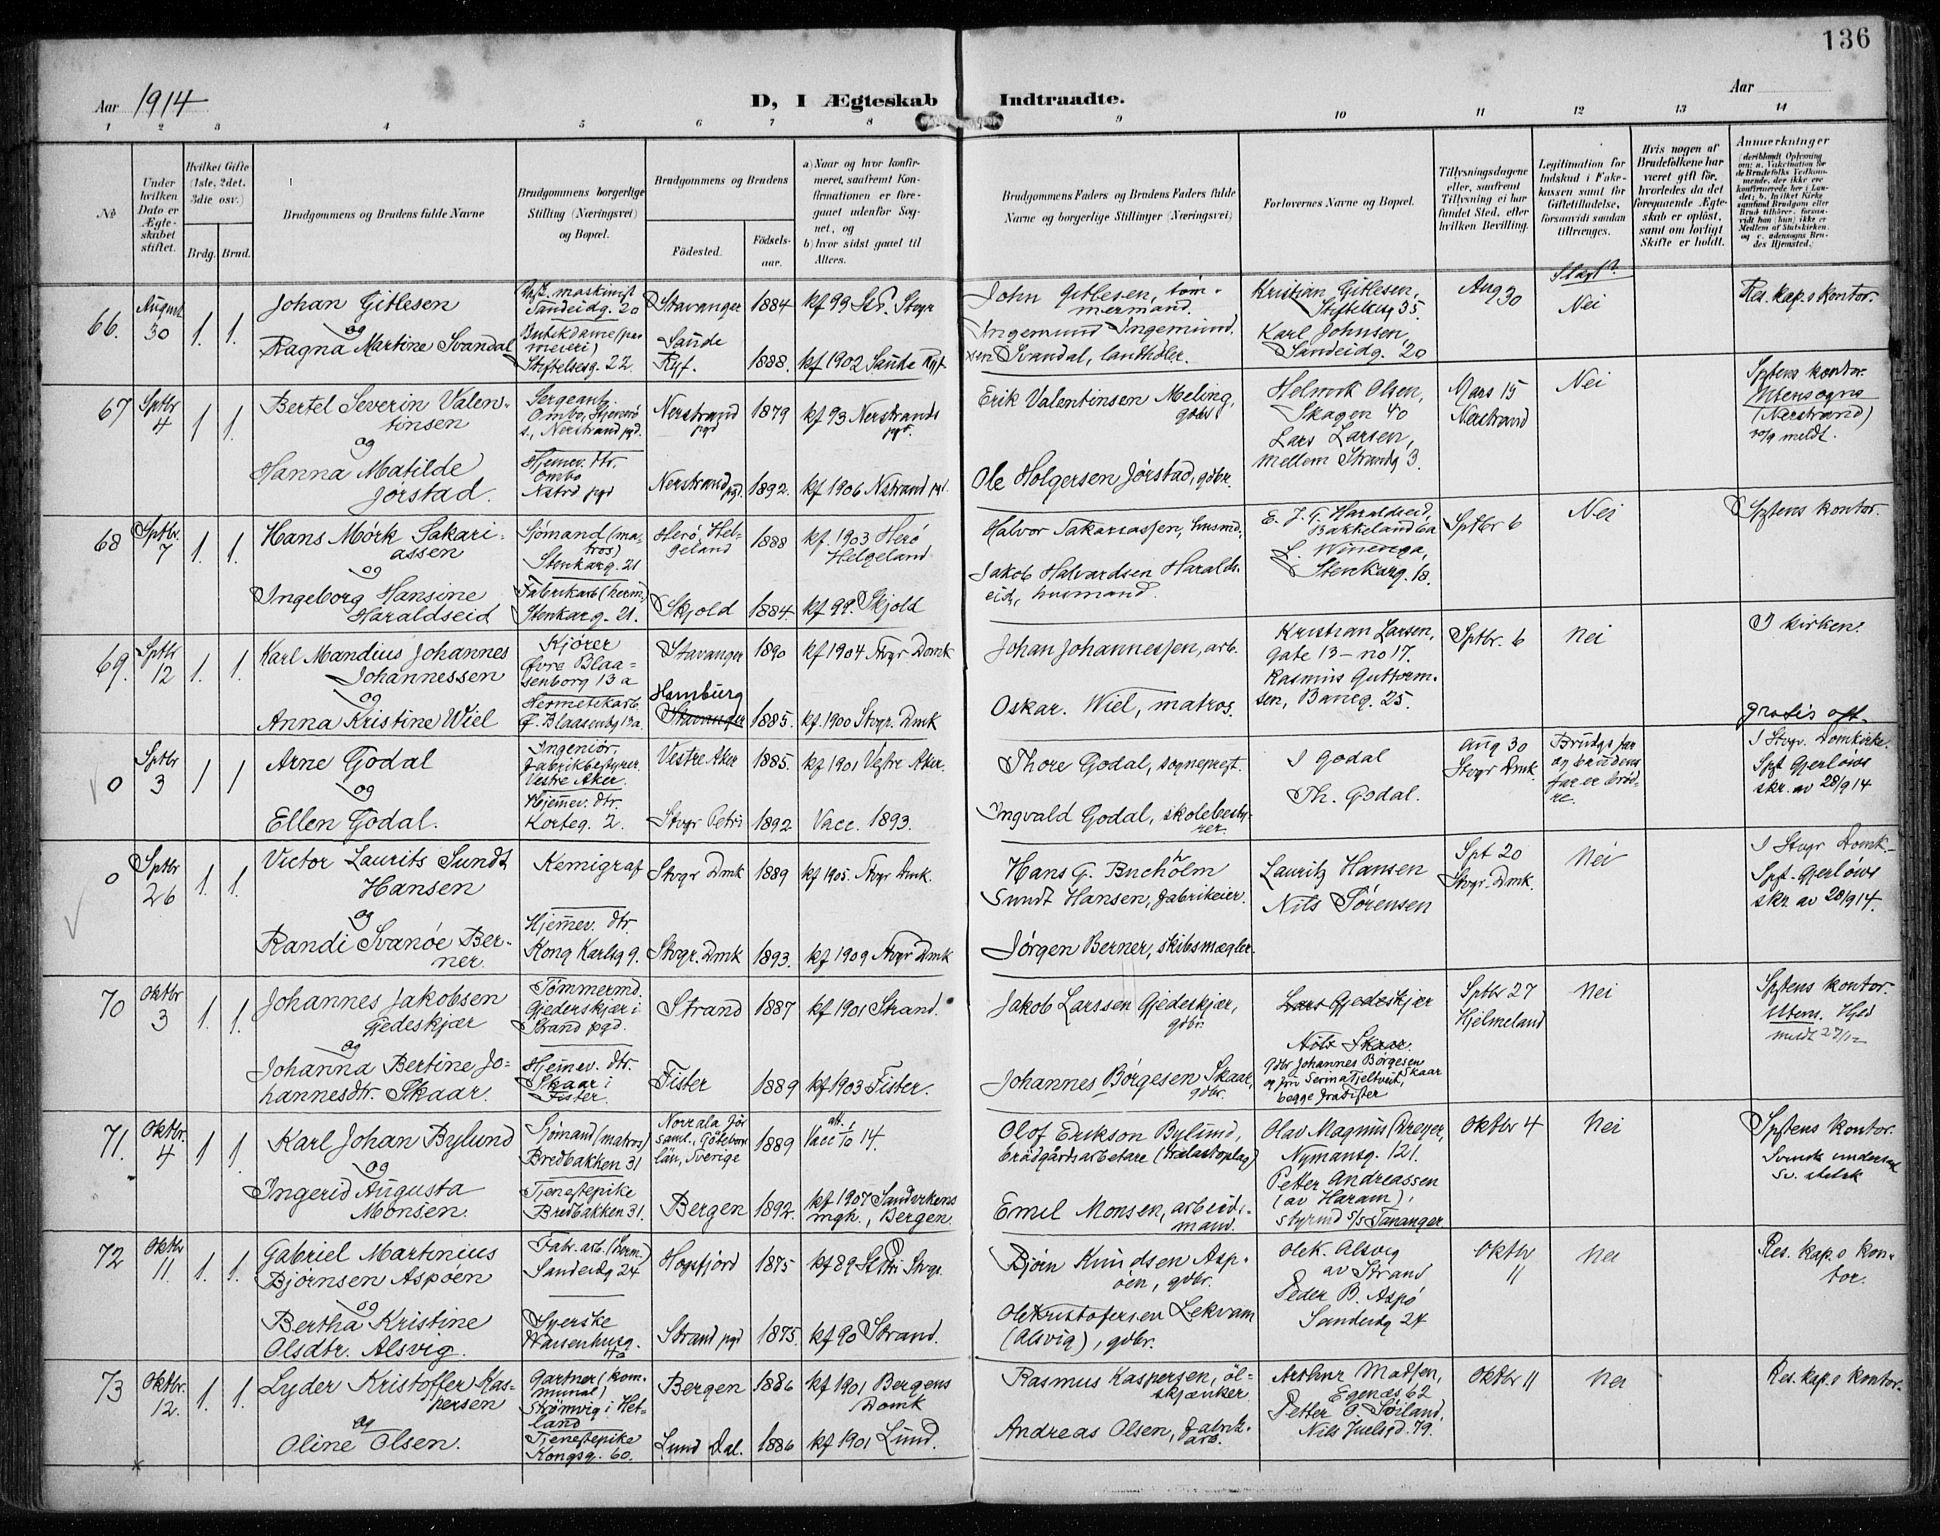 136
Aar 1914
D, I Ægteskab Indtraadte.
Aar
1 2 3 4 5 6 7 8 9 10 11 12 13 14
No
Under hvilken Dato er Ægte-skabet stiftet.
Hvilket Gifte (1ste, 2det, 3die osv.)
Brdg. Brud.
Brudgommens og Brudens fulde Navne
Brudgommens borgerlige Stilling (Næringsvei) og Bopæl.
Brudgommens og Brudens
Födested.
Födsels-aar.
a) Naar og hvor konfir-meret, saafremt Kon-firmationen er fore-gaaet udenfor Sog-net, og
b) hvor sidst gaaet til Alters.
Brudgommens Faders og Brudens Faders fulde Navne og borgerlige Stillinger (Næringsvei)
Forlovernes Navne og Bopæl.
Tillysningsdagene eller, saafremt Tillysning ei har fundet Sted, efter hvilken Bevilling.
Legitimation for Indskud i Enke-kassen samt for Giftetilladelse, forsaavidt saadan tiltrænges.
Hvis nogen af Brudefolkene har været gift för, hvorledes da det foregaaende Ægte-skab er oplöst, samt om lovligt Skifte er holdt.
Anmærkninger
66. August 30 1. 1. Johan Gitlesen
og
Ragna Martine Svandal
maskinist
Sandeidg. 20
Stiftelsesg. 22.
Stavanger 1884 kf 99 St. P. Stvgr
Saude Ryf. 1888. kf 1902 Saude Ryf
John Gitlesen, töm-mermand.
Ingemund Ingemund-sen Svandal, landhdler.
Kristian Gitlesen,
Stiftelsesg 35.
Karl Johnsen
Sandeidg. 20
Aug 30
Nei
Res. kap.s kontor.
67 Sptbr 4 1 1. Bertel Severin Valen-tinsen
og
Hanna Matilde Jørstad.
Sergeant,
Ombo, Nerstrand pgd.
Hjemev. dtr.
Ombo
Nerstrand pgd 1879 kf 93 Nerstrands pgd.
Nerstrand pgd. 1892. kf 1906 Nstrand pgd.
Erik Valentinsen Meling, gdbr.
Ole Holgersen Jørstad, gdbr.
Helmik Olsen,
Skagen 40
Lars Larsen,
Mellem Strandg 3.
Mars 15
Nerstrand
Nei
Spztens kontor.
Utensogns
(Nerstrand)
meldt.
68 Sptbr. 7 1. 1. Hans Mörk Sakari-assen
og
Ingeborg Hansine Haraldseid
Sjömand (ma-tros)
Stenkarg. 21
Fabrikarb (herm.)
Stenkarg. 21.
Herö, Hel-geland 1888 kf. 1903 Herö Helgeland
Skjold 1884. kf 99. Skjold
Halvor Sakariassen, husmd.
Jakob Halvardsen Haralds-eid, husmand.
E. J. G. Haraldseid,
Bakkeland 6a
Stenkarg. 18.
Sptbr 6
Nei
Spztens kontor.
69. Sptbr 12 1. 1. Karl Mandius Johannes Johannessen
og
Anna Kristine Wiel
Kjörer
Øvre Blaa-senborg 13 a
Hermetikarb.
Ø. Blaasenbg 13a.
Stavanger 1890 kf 1904 Stvgr Domk
Hamburg Stavanger 1885. kf. 1900 Stvgr. Dmk
Johan Johannessen, arb.
Oskar. Wiel, matros.
Kristian Larsen,
gate 13 - no 17.
Rasmus Guttorm-sen, Baneg. 25.
Sptbr. 6
Nei
I kirken.
gratis
0 Sptbr 3 1 1 Arne Godal
og
Ellen Godal.
Ingeniör,
fabrikbestyrer
Vestre Aker.
Hjemev. dtr.
Korteg. 2.
Vestre Aker 1885. kf 1901 Vestre Aker.
Stvgr Petri 1892 Vacc. 1893.
Thore Godal, sognepræst.
Ingvald Godal, skolebesty-rer.
I Godal
Th. Godal.
Aug 30
Stvgr Dmk.
Brudgs far og brudens far er brød-re.
I Stvgr. Domkirke.
Spzt Gjerlöws
skr. av 28/9 14
0 Sptbr 26 1. 1. Victor Laurits Sundt Hansen
og
Randi Svanöe Ber-ner.
Kemigraf
Hjemev. dtr.
Kong Karlsg 9.
Stvgr Dmk 1889 kf 1905. Stvgr Dmk.
Stvgr. Dmk 1893. kf 1909 Stvgr Dmk
Hans G. Bucholm
Sundt Hansen, fabrikeier.
Jörgen Berner, skibsmægler
Lauritz Hansen
Nils Sörensen
Spt 20
Stvgr. Dmk.
Nei
I Stvgr Domk.
Spzt. Gjerlöws
skr. av 28/9 14.
70 Oktbr 3 1. 1. Johannes Jakobsen Gjedeskjær
og
Johanna Bertine Jo-hannesdtr. Skaar.
Tömmermd.
Gjederskjær i
Strand pgd.
Hjemev. dtr.
Skaar i
Fister.
Strand 1887 kf 1901 Strand.
Fister 1889 kf 1903 Fister.
Jakob Larssen Gjedeskjær, gdbr.
Johannes Børgesen Skaar, gdbr.
Lars Gjedeskjær
Nils Skaar.
Gdbr Johannes Børgesen Skaar
og fru Serina Tjeltveit,
begge fra Fister
Sptbr 27
Hjelmeland
Nei
Spztens kontor.
Utens.
meldt
71. Oktbr. 4 1 1. Karl Johan Bylund
og
Ingerid Augusta Monsen.
Sjömand (matros)
Bredbakken 31
Tjenestepike
Bredbakken 31.
Norrala
Sverige 1889
Bergen 1892. kf 1907 Sandvikens mgh., Bergen.
Olof Erikson Bylund,
brädgårdsarbetare (trælastoplag)
Emil Monsen, arbeids-mand.
Olav Magnus Dreyer,
Nymansg. 121.
Petter Andreassen
(av Haram),
styrmd s/s Tananger
Oktbr 4
Nei
Spztens kontor.
72 Oktbr 11. 1. 1. Gabriel Martinius Björnsen Aspöen
og
Bertha Kristine Olsdtr. Alsvig.
Fabr. arb. (herm.)
Sandeidg 24
Syerske
Høgsfjord 1875 kf 89 St Petri Stvgr.
Strand pgd 1875. kf 90 Strand.
Bjørn Knudsen Asp-öen, gdbr.
Ole Kristofersen Lekvam
(Alsvig), gdbr.
Ole K. Alsvig
av Strand
Peder B. Aspö
Sandeidg 24
Oktbr 11
Nei
Res. kap.s kon-tor.
73 Oktbr. 12. 1. 1. Lyder Kristoffer Kas-persen
og
Oline Olsen.
Gartner (kom-munal)
Strömvig i Het-land
Tjenestepike
Kongsg. 60.
Bergen 1886 kf 1901 Bergens Domk
Lund Dal. 1886 kf 1901 Lund.
Rasmus Kaspersen, öl-skjænker
Andreas Olsen, fabrik-arb.
Arthur Madsen,
Egenæs 62
Petter O. Söiland,
Nils Juelsg. 79.
Oktbr 11
Nei
Res. kap.s kontor.